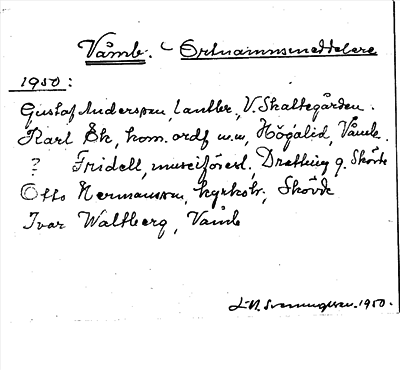 Våmb. - Ortnamnsmeddelare
1950:
Gustaf Andersson, lantbr., V. Skattegården.
Karl Ek, kom. ordf. m.m., Högalid, Våmb.
? Fridell, museiförest., Drottning g. Skövde
Otto Hermansson, kyrkskr., Skövde
Ivar Wallberg, Våmb
1950.